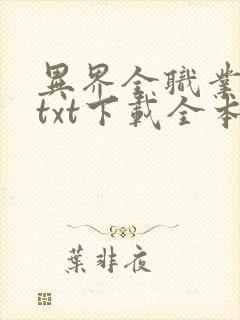 異界全職業
txt下載全本
葉非夜